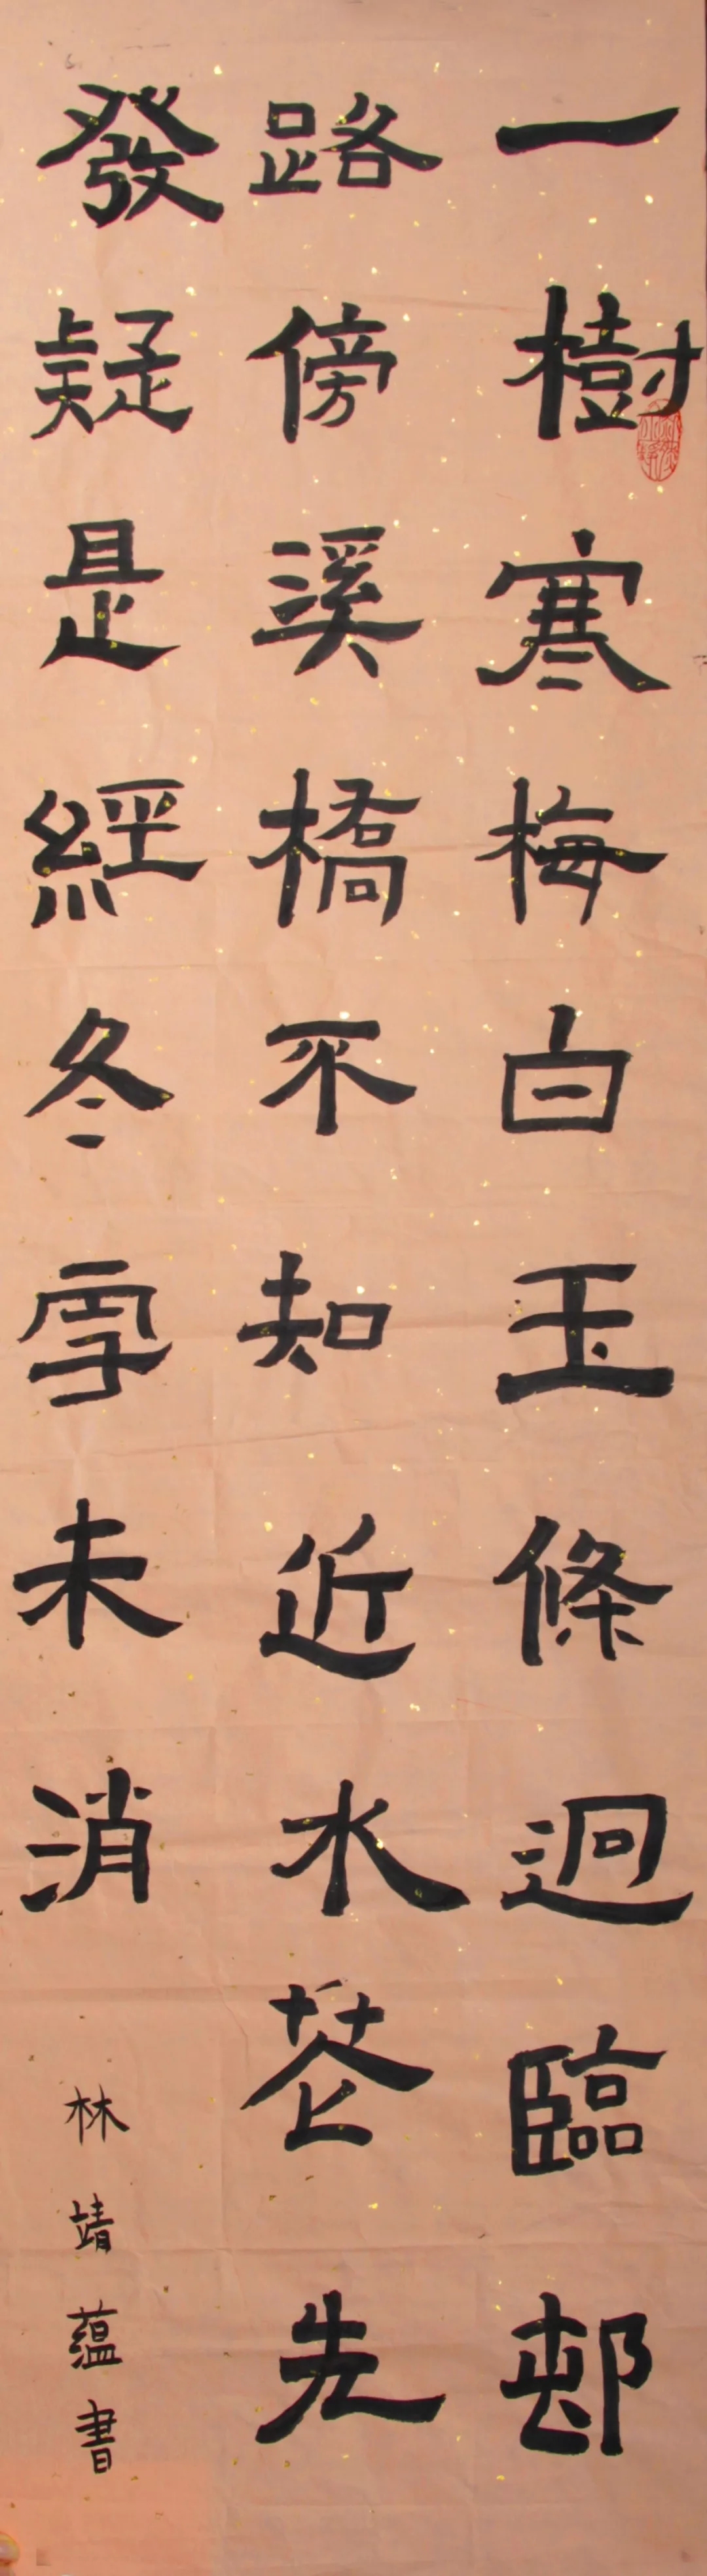 一樹寒梅白玉條迥臨邨
路傍溪橋不知近水花先
發疑是經冬雪未消
林靖蕴書